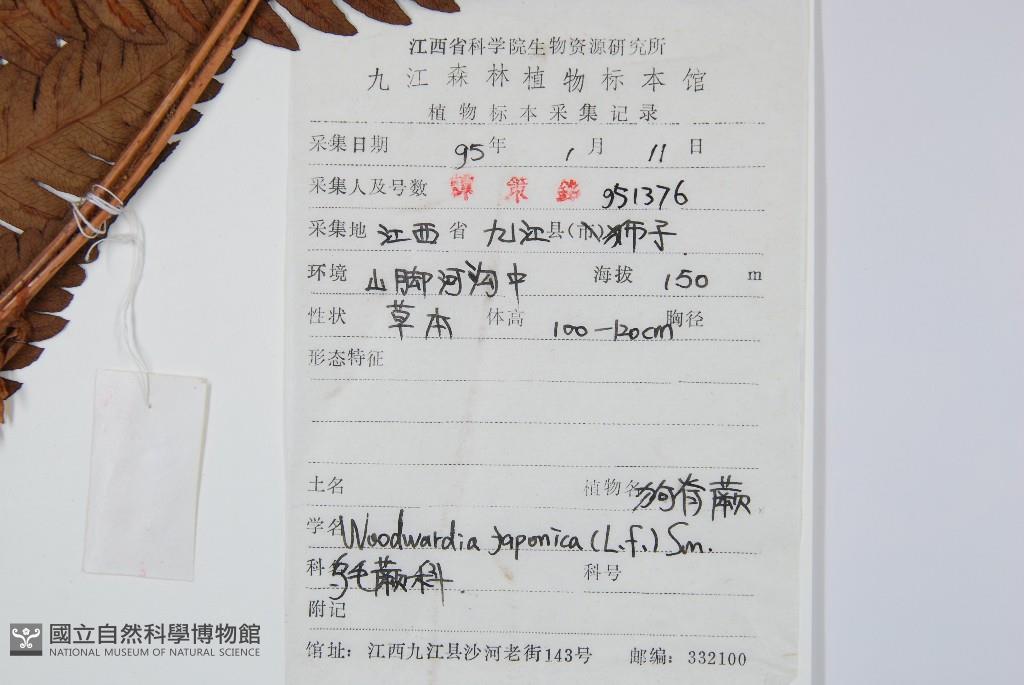 江西省科学院生物资源研究所
九江森林植物标本馆
植物标本采集记录
采集日期 95年 1月 11日
采集人及号数 谭策铭 951376
采集地 江西省 九江县(市)狮子
环境 山脚河沟中 海拔 150 m
性状 草本 体高 100-120cm 胸径
形态特征
土名 植物名 狗脊蕨
学名 Woodwardia japonica (L.f.) Sm.
科名 乌毛蕨科 科号
附记
馆址：江西九江县沙河老街143号 邮编：332100
國立自然科學博物館
NATIONAL MUSEUM OF NATURAL SCIENCE